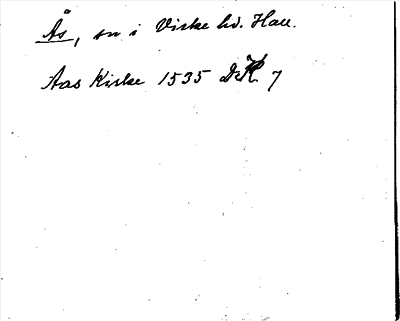 Ås, sn i Viske hd. Hall.
Aas Kirke 1535 DMK 7